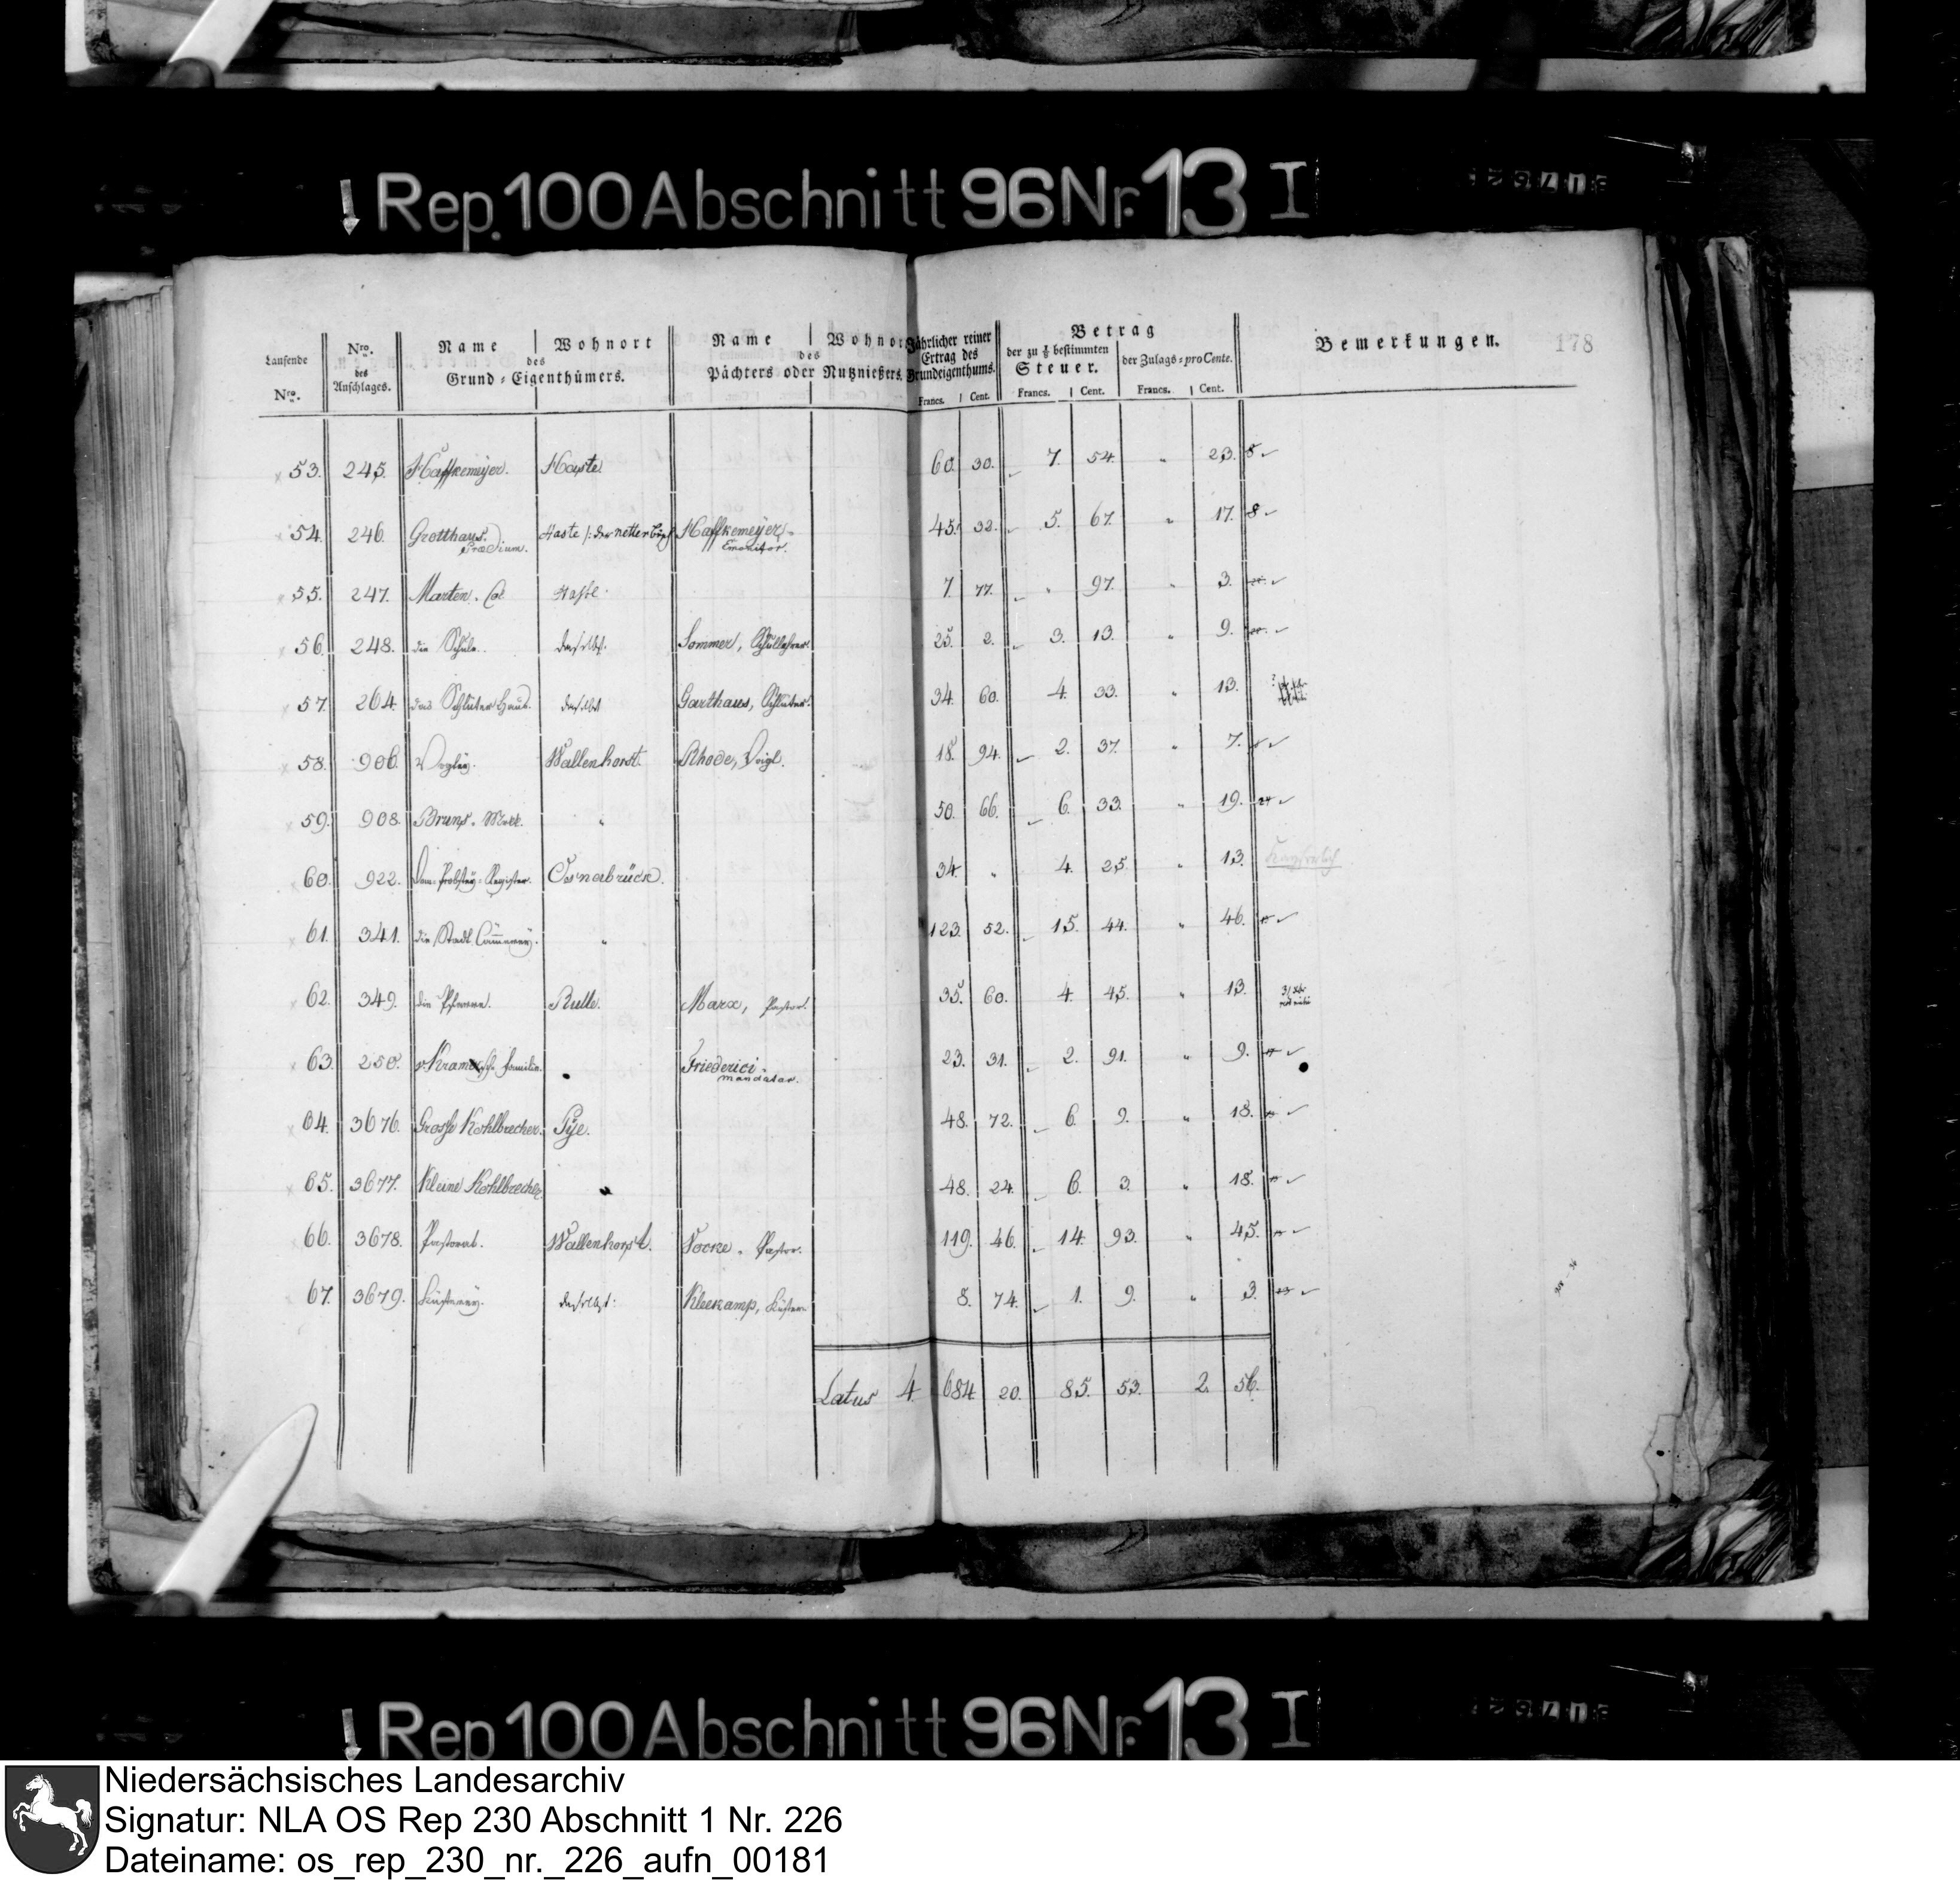 Rep. 100 Abschnitt 96 Nr. 13 I
178
Laufende Nro.
Nro. des Anschlages.
Name | Wohnort
des
Grund-Eigenthümers.
Name | Wohnort
des
Pächters oder Nutznießers.
Jährlicher reiner Ertrag des Grundeigenthums.
Francs. | Cent.
Betrag
der zu 1/8 bestimmten Steuer.
Francs. | Cent.
der Zulags-pro Cente.
Francs. | Cent.
Bemerkungen.
53. 245. Haffkemeyer. Haste 60. 30. 7. 54. " 23.
54. 246. Grotthaus. Praedium. Haste Haffkemeyer, 45. 32. 5. 67. " 17.
55. 247. Marten. Col. Haste. 7. 77. " 97. " 3.
56. 248. die Schule. daselbst. Sommer, Schullehrer. 25. 2. 3. 13. " 9.
57. 264. das Schlüter Haus. daselbst Garthaus, Schlüter. 34. 60. 4. 33. " 13.
58. 906. Vogtey. Wallenhorst. Rhode, Voigt. 18. 94. 2. 37. " 7.
59. 908. Bruns. " 50. 66. 6. 33. " 19.
60. 922. Dom-Probstey-Register. Osnabrück. 34. " 4. 25. " 13.
61. 341. die Stadt Cämmerey. " 123. 52. 15. 44. " 46.
62. 349. die Pfarre. Rulle. Marx, Pastor. 35. 60. 4. 45. " 13.
63. 250. v. Kramersche Familie. " Friederici. mandatar. 23. 31. 2. 91. " 9.
64. 3676. Grosse Kohlbrecher. Pye. 48. 72. 6. 9. " 18.
65. 3677. Kleine Kohlbrecher " 48. 24. 6. 3. " 18.
66. 3678. Pastorat. Wallenhorst. Vocke. Pastor. 119. 46. 14. 93. " 45.
67. 3679. Küsterey. daselbst: Kleekamp, Küster. 8. 74. 1. 9. " 3.
Latus 4. 684. 20. 85. 53. 2. 56.
Rep 100 Abschnitt 96 Nr. 13 I
Niedersächsisches Landesarchiv
Signatur: NLA OS Rep 230 Abschnitt 1 Nr. 226
Dateiname: os_rep_230_nr._226_aufn_00181